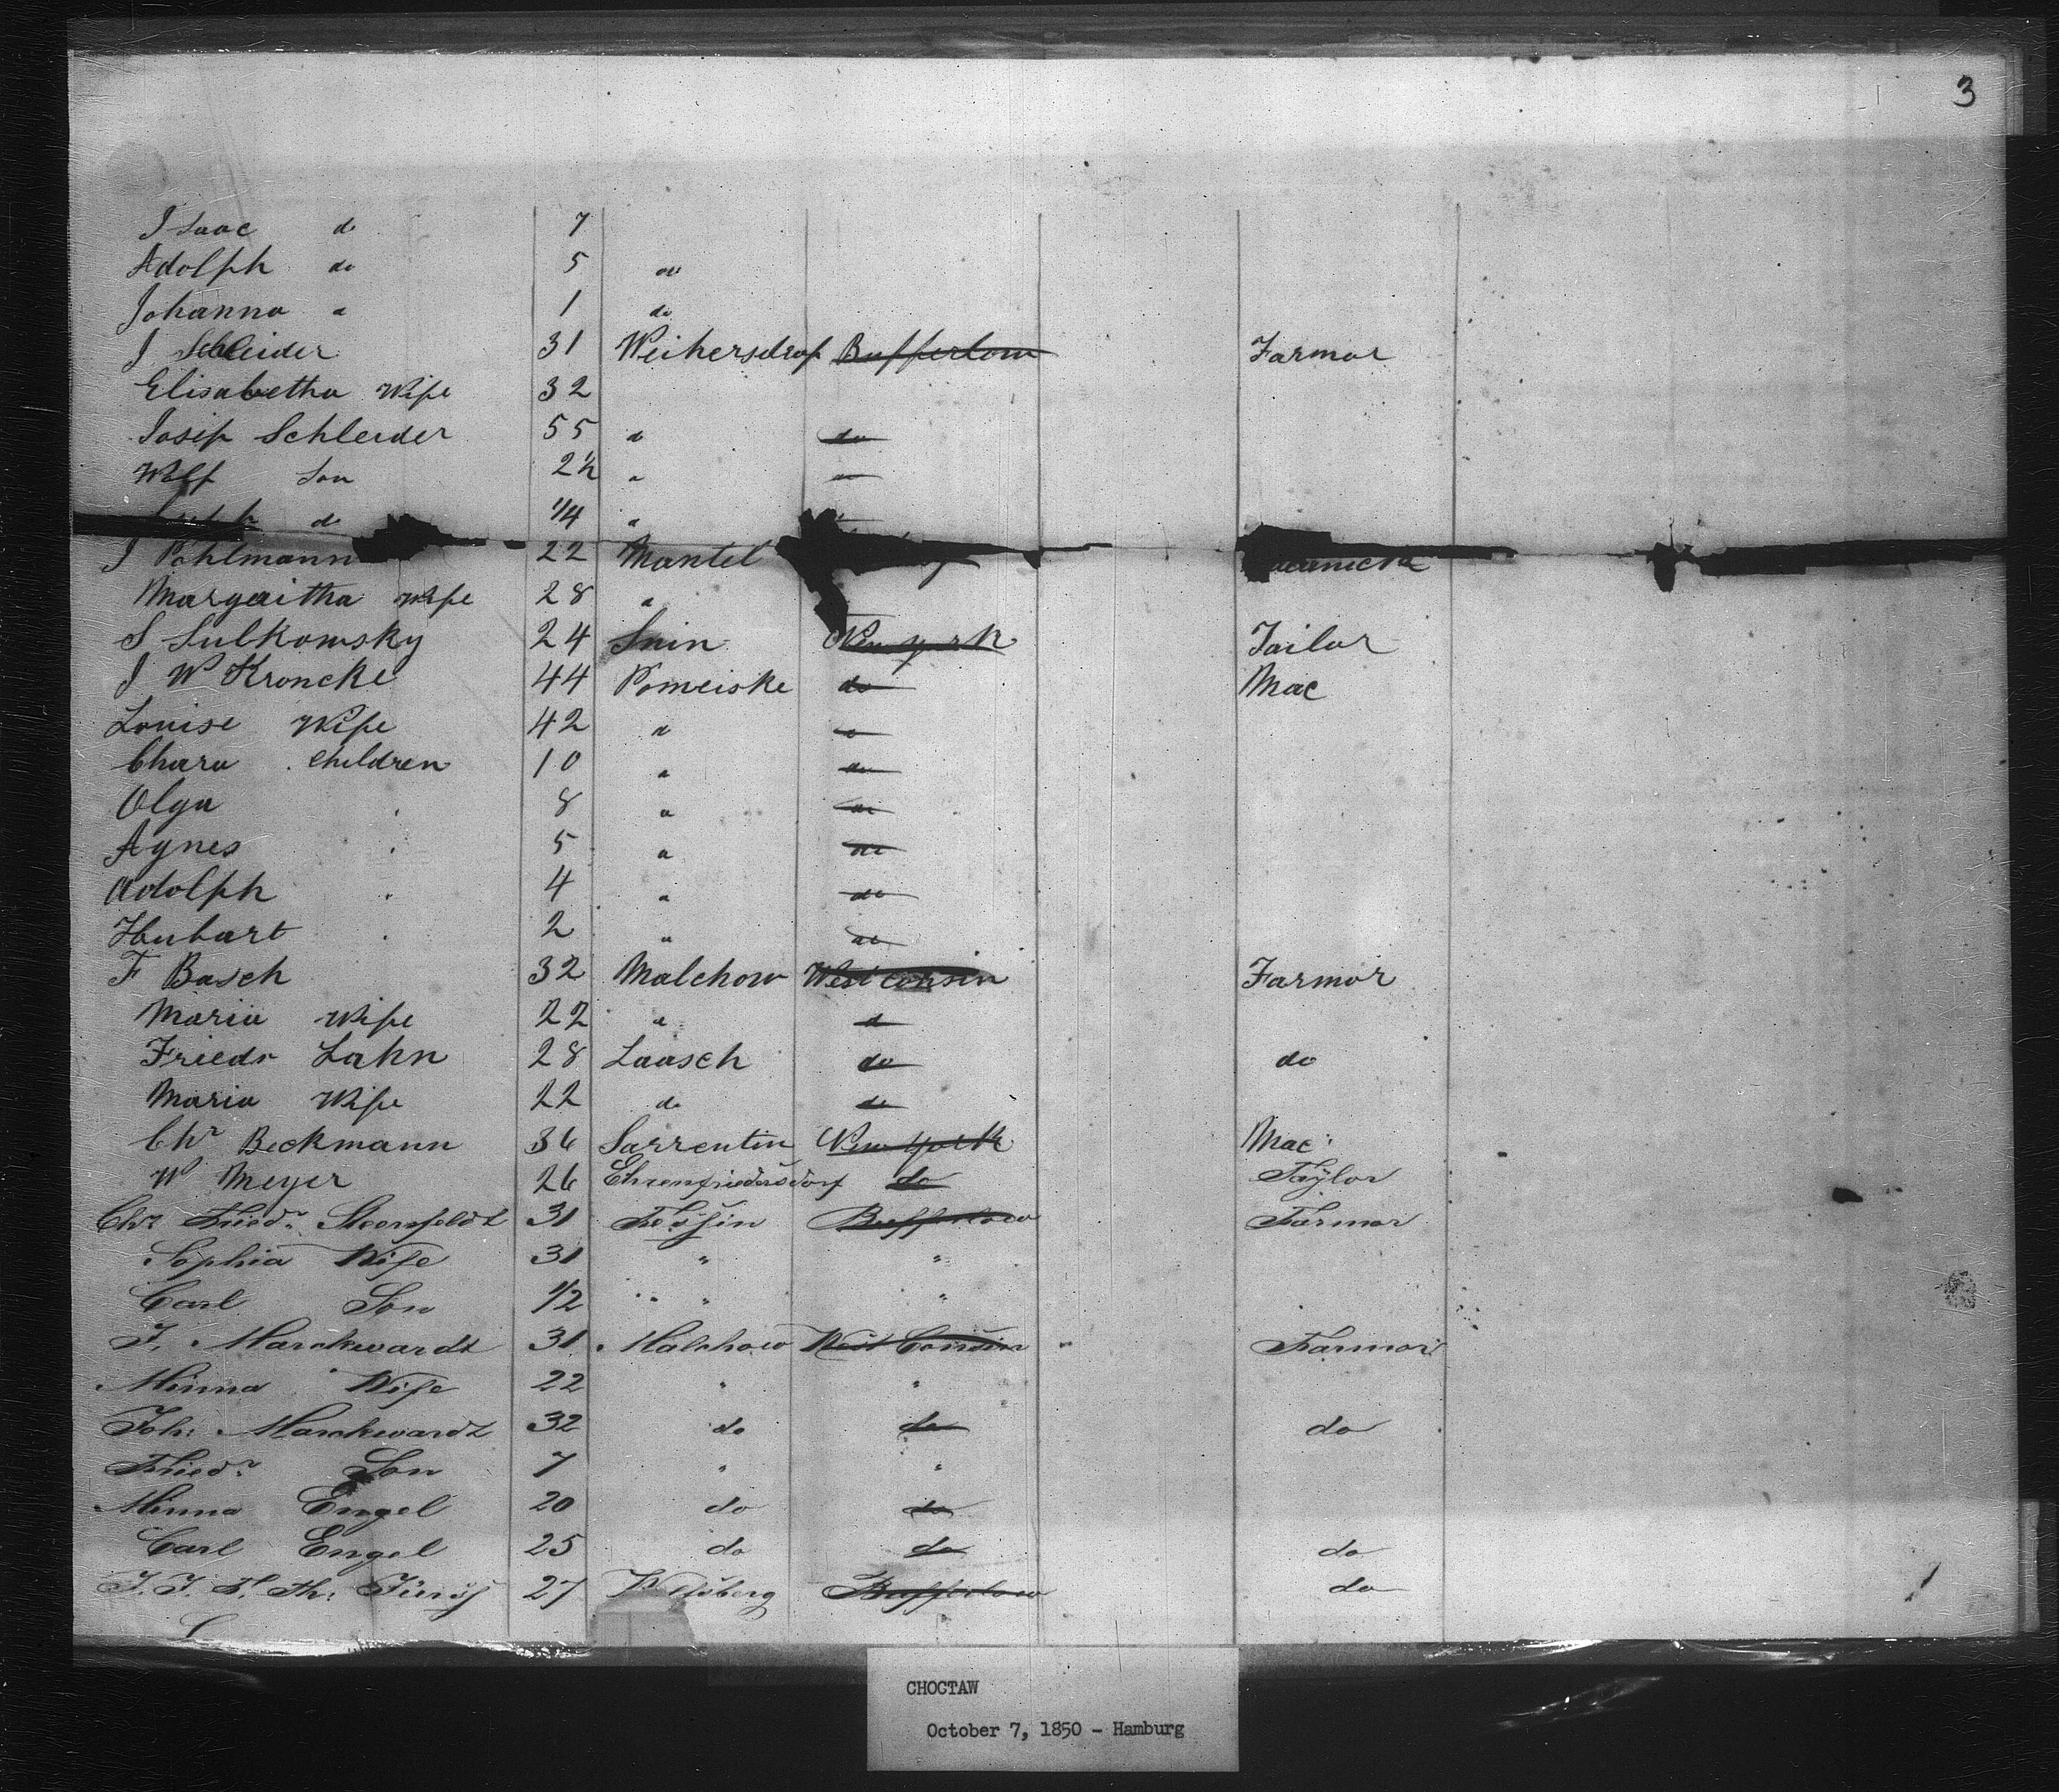 3
Isaac do 7
Adolph do 5 do
Johanna do 1 do
J Schleider 31 Weikersdrof Bufferlow Farmor
Elisabetha Wife 32
Josif Schleider 55 do do
Wolf Son 2½ do do
do 1/4 do
J Pohlmann 22 Mantel
Margaitha Wife 28 do
S Sulkowsky 24 Snin New york Tailor
J W Kroncke 44 Pomeiske do Mac
Louise Wife 42 do do
Chara Children 10 do do
Olga 8 do do
Agnes 5 do do
Adolph 4 do do
Hubart 2 do do
F Basch 32 Malchow Westconsin Farmor
Maria Wife 22 do do
Friedr Lahn 28 Laasch do do
Maria Wife 22 do do
Chr Beckmann 36 Sarrentin New york Mac
W Meyer 26 Ehrenfriedersdorf do Taylor
Chr Friedr 31 Tessin Bufferlow Farmor
Sophia Wife 31 " "
Carl Son 1/2 " "
F. Marckwardt 31 Malchow West Consin " Farmor
Minna Wife 22 " "
Joh: Marckwardt 32 do do do
Friedr Son 7 " "
Minna Engel 20 do do
Carl Engel 25 do do do
27 Bufferlow do
CHOCTAW
October 7, 1850 - Hamburg